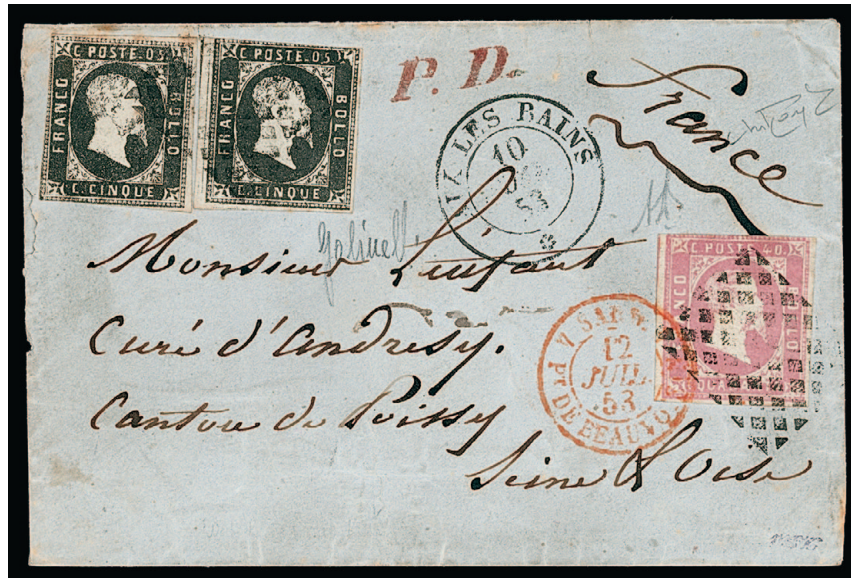 C. POSTE. 05
FRANCO
BOLLO
C. CINQUE
C. POSTE. 05
FRANCO
BOLLO
C. CINQUE
P. D.
AIX LES BAINS
10
53
France
Golinelli
C. POSTE. 40
FRANCO
BOLLO
Monsieur Lenfant
Curé d'Andresy.
Canton de Poissy
Seine & Oise
SARD.
12
JUIL.
53
PT DE BEAUVO